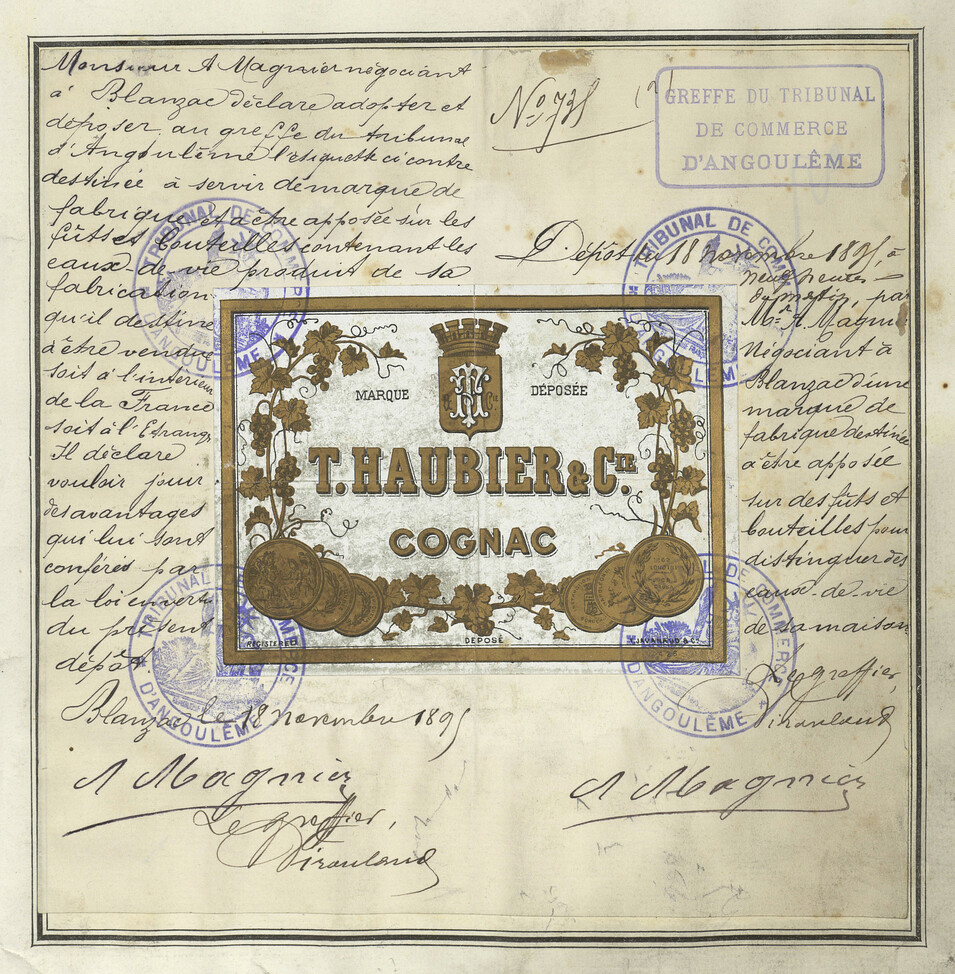 Monsieur A Magnier négociant
à Blanzac déclare adopter et
déposer au greffe du tribunal
d'Angoulême l'étiquette ci contre
destinée à servir de marque de
fabrique et à être apposée sur les
fûts et bouteilles contenant les
eaux de vie produit de sa
fabrication
qu'il destine
à être vendue
soit à l'intérieur
de la France
soit à l'Etranger
Il déclare
vouloir jouir
des avantages
qui lui sont
conférés par
la loi en vertu
du présent
dépôt
Blanzac le 18 novembre 1895
A Magnier
Le greffier,
No 735
GREFFE DU TRIBUNAL
DE COMMERCE
D'ANGOULÊME
Dépôt du 18 novembre 1895, à
neuf heures
du matin, par
Mr A. Magnier
Négociant à
Blanzac d'une
marque de
fabrique destinée
à être apposée
sur des fûts et
bouteilles pour
distinguer des
eaux-de-vie
de sa maison
Le greffier,
A Magnier
MARQUE DÉPOSÉE
T. HAUBIER & CIE.
COGNAC
REGISTERED
DEPOSÉ
TRIBUNAL DE COMMERCE
D'ANGOULÊME
TRIBUNAL DE COMMERCE
D'ANGOULÊME
TRIBUNAL DE COMMERCE
D'ANGOULÊME
TRIBUNAL DE COMMERCE
D'ANGOULÊME